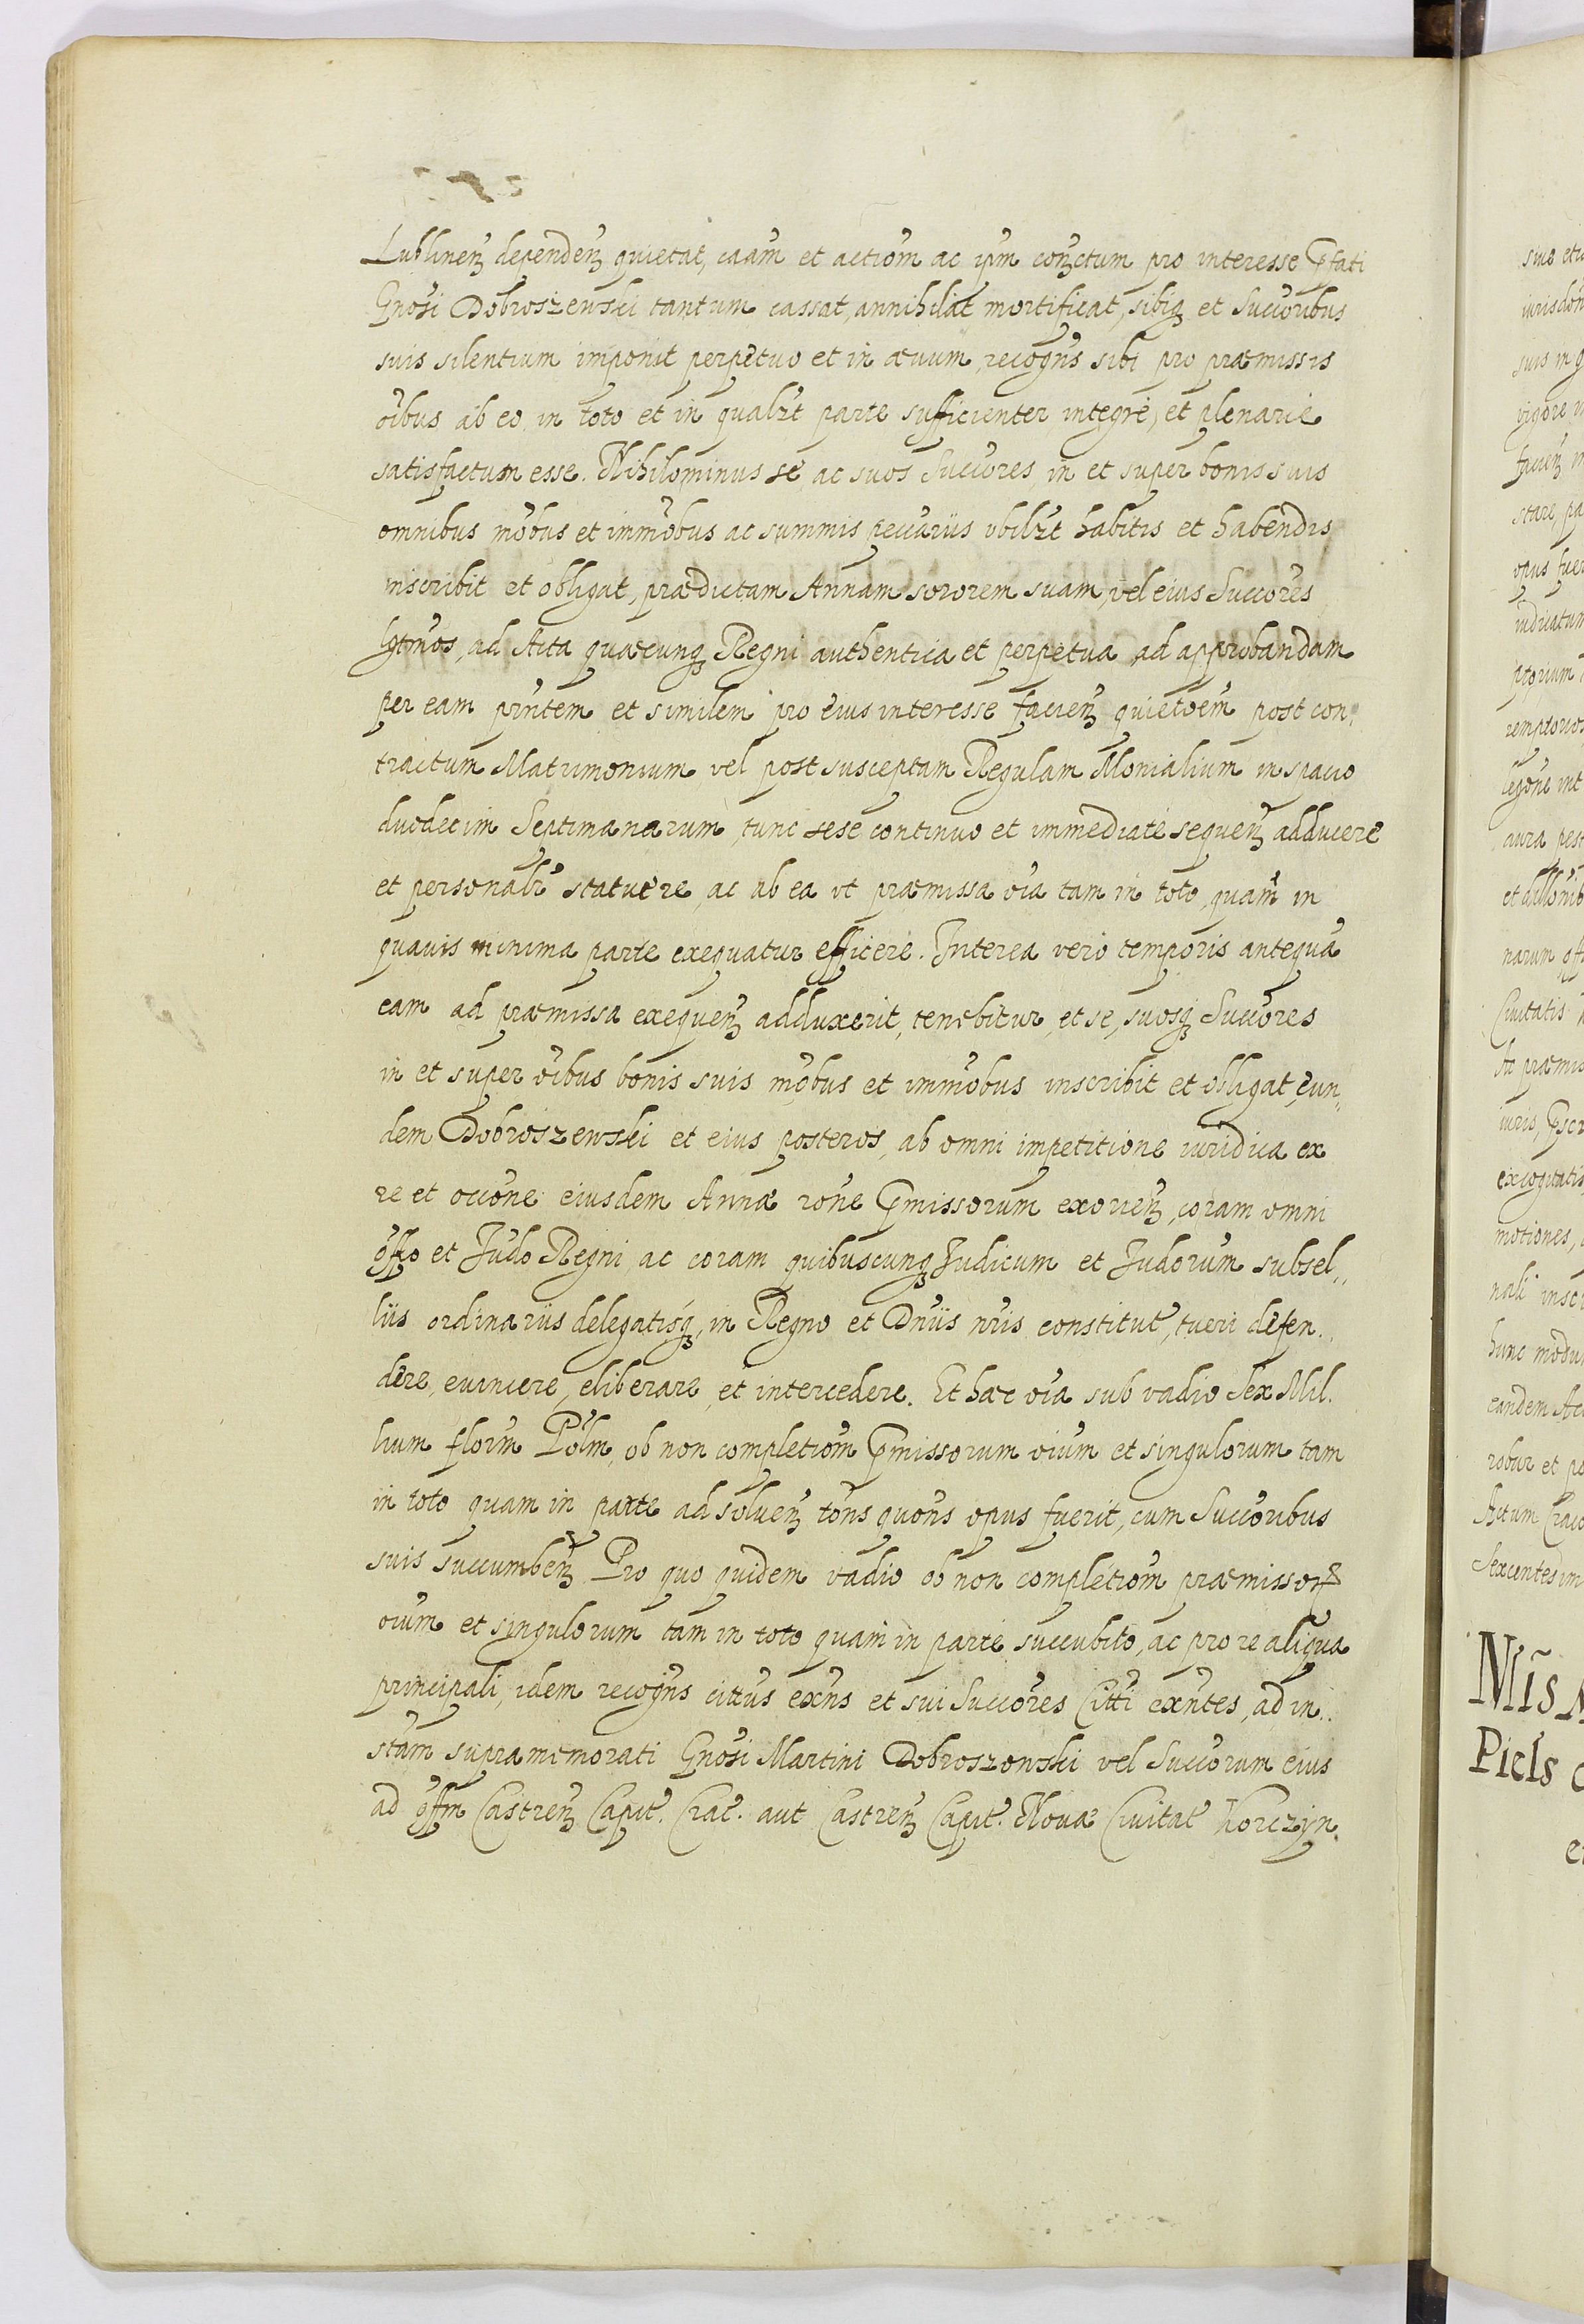 Lublinen̄ dependen̄ quietat, caām et actiom̄ ac ipm̄ contctum pro interesse Pfati
Gnosi Dobroszewski tantum cassat, annihilat mortificat, sibiq₃ et Succoribus
suis silentium imponit perpetuo et in aevum, recogn̄s sibi pro præmissis
oībus ab eo in toto et in qualzt parte sufficienter integrè, et plenariè
satisfactum esse. Nihilominus se ac suos Succores, in et super bonis suis
omnibus mobus et immobus ac summis pecūriis vbilzt habitis et habendis
inscribit et obligat, prædictam Annam sororem suam, vel eius Succores
lgtmos, ad Acta quæcunq₃ Regni authentica et perpetua ad approbandam
per eam pn̄tem et similem pro eius interesse facien̄ quietoēm post con„
tractum Matrimonium vel post susceptam Regulam Monialium in spacio
duodecim Septimanarum tunc sese continuo et immediatè sequen̄ adducere
et personalr̄ statuere, ac ab ea vt præmissa oīa tam in toto, quam in
quauis minima parte exequatur efficere. Interea verò temporis antequā
eam ad præmissa exequen̄ adduxerit, tenebitur, et se, suosq₃ Succores
in et super oībus bonis suis mobus et immobus inscribit et obligat, eun„
dem Dobroszewski et eius posteros, ab omni impetitione iuridica ex
re et occōne eiusdem Annæ rōne Pmissorum exorien̄, coram omni
offo et Judo Regni ac coram quibuscunq₃ Judicum et Judorum subsel„
liis ordinariis delegatisq₃, in Regno et Dn̄iis nr̄is constitut, tueri defen„
dere, euincere, eliberare, et intercedere. Et hæc oīa sub vadio Sex Mil.
lium flor̄m Pol̄m, ob non completiom̄ Pmissorum oīum et singulorum tam
in toto quam in parte ad soluen̄ tōns quōns opus fuerit, cum Succoribus
suis succumben̄. Pro quo quidem vadio ob non completiom̄ præmissorꝝ
oīum et singulorum tam in toto quam in parte succubito, ac pro re aliqua
principali, idem recogn̄s cittus exn̄s et sui Succores Citti exn̄tes, ad in„
stām supramemorati Gnosi Martini Dobroszowski vel Succorum eius
ad offm Castren̄ Capit. Crac. aut Castren̄ Capit. Nouæ Ciuitat Korczyn.